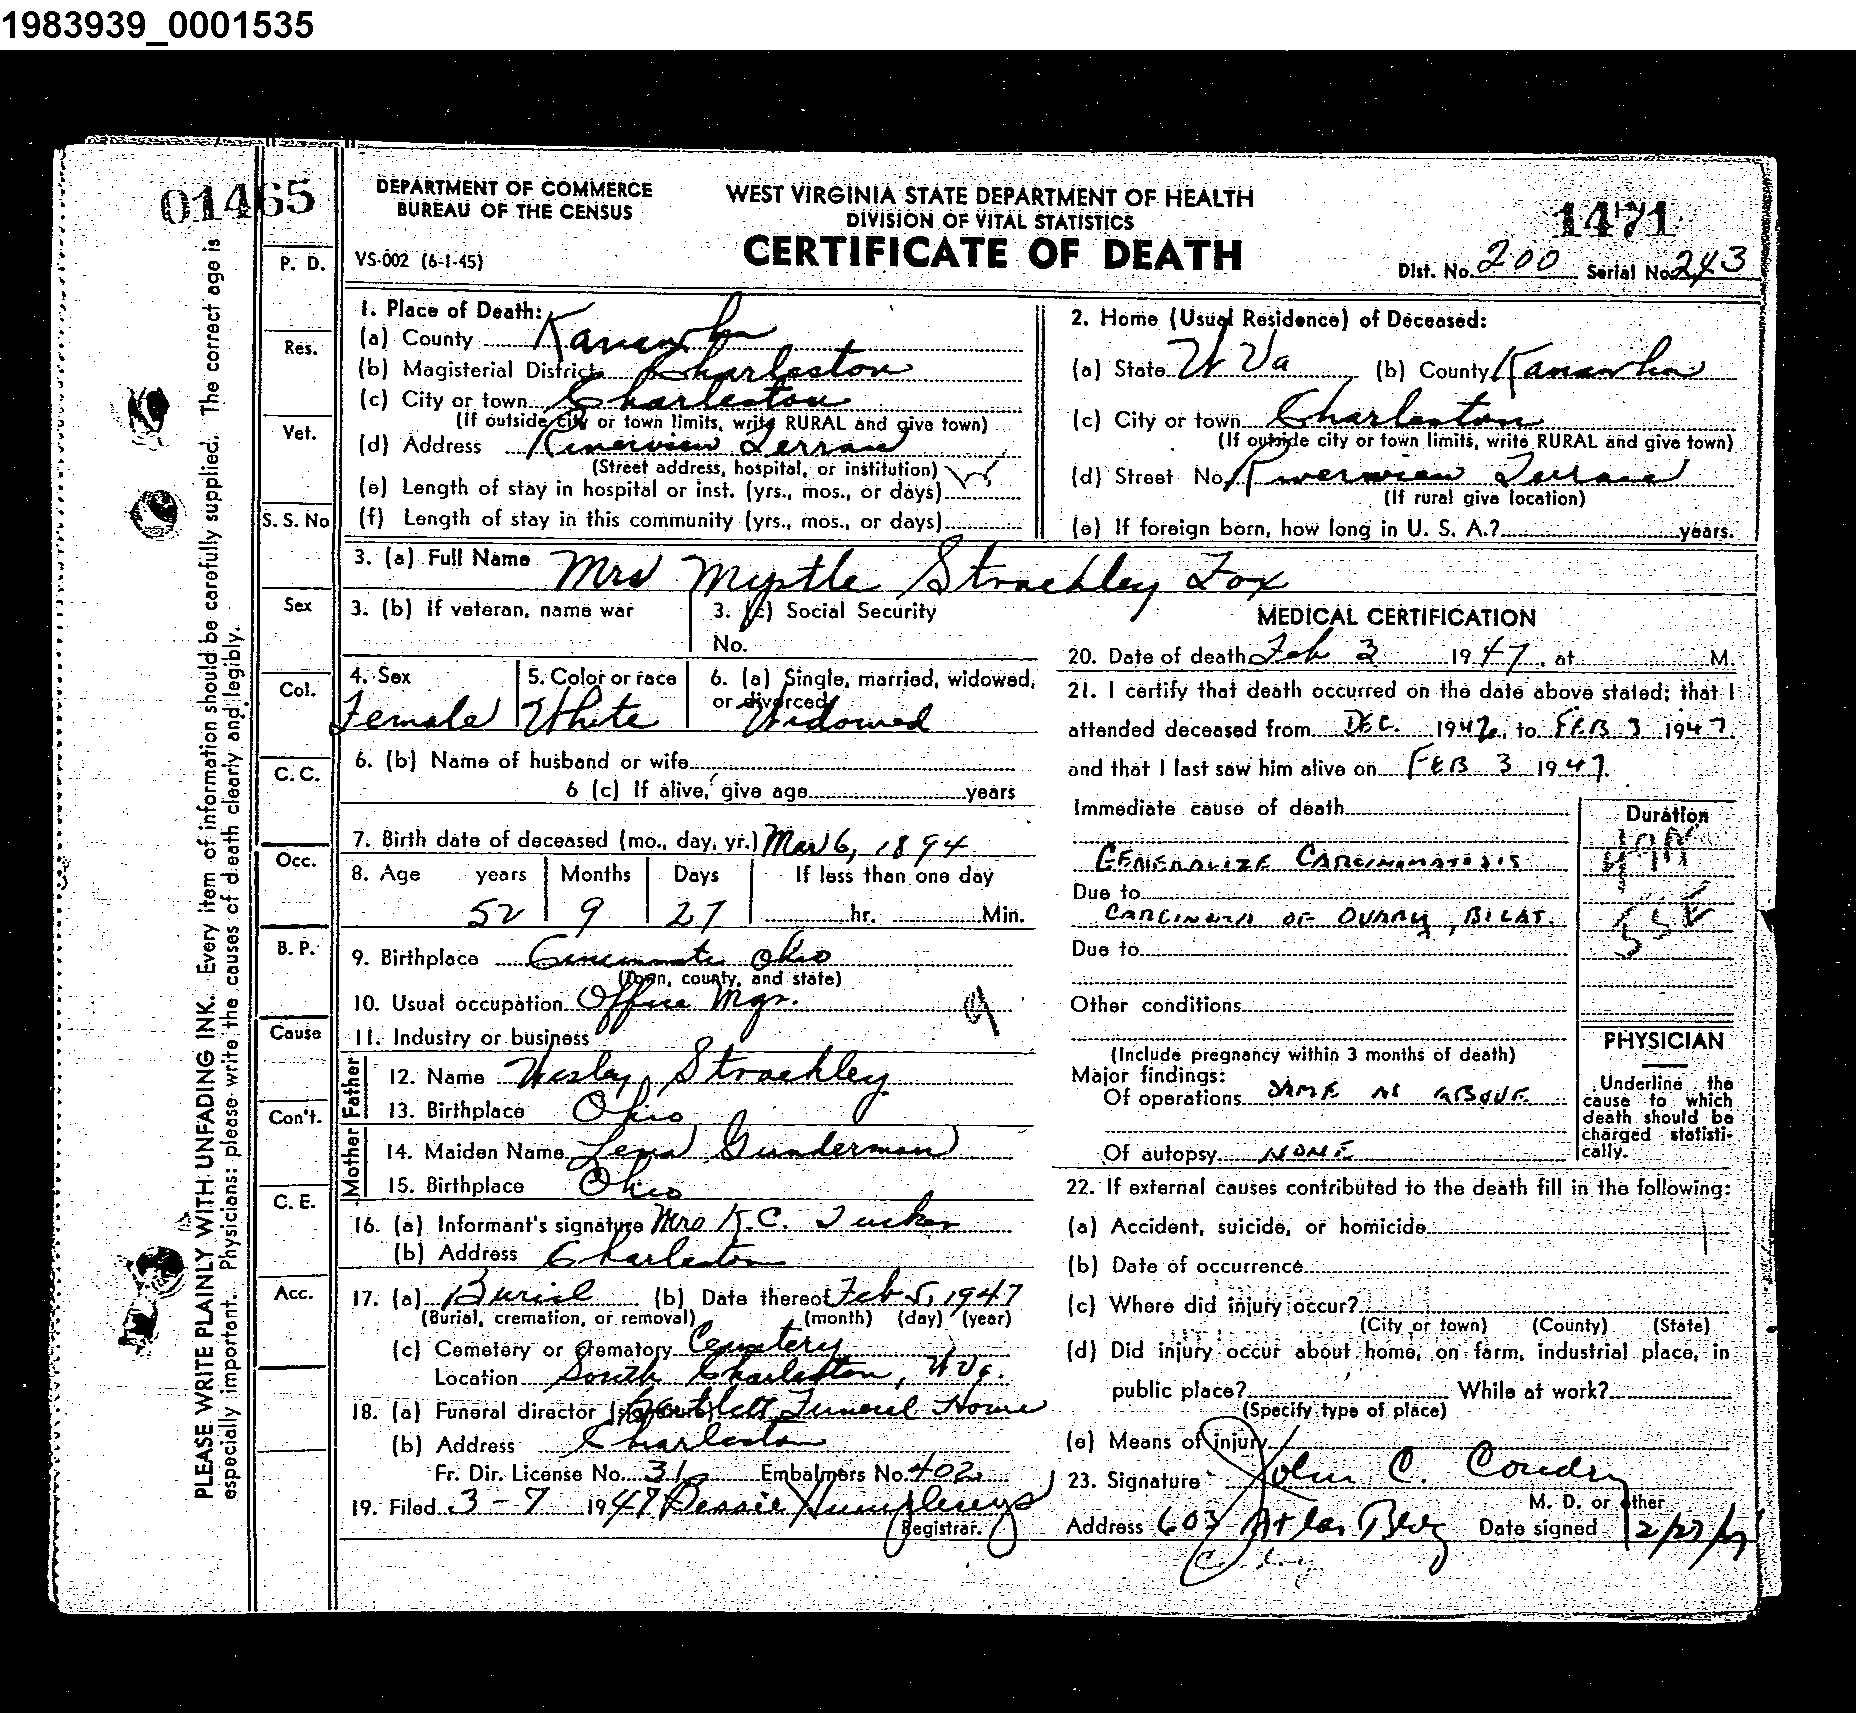 1983939_0001535
01465
DEPARTMENT OF COMMERCE
BUREAU OF THE CENSUS
VS-002 (6-1-45)
WEST VIRGINIA STATE DEPARTMENT OF HEALTH
DIVISION OF VITAL STATISTICS
CERTIFICATE OF DEATH
1471
Dist. No. 200 Serial No. 243
PLEASE WRITE PLAINLY WITH UNFADING INK. Every item of information should be carefully supplied. The correct age is
especially important. Physicians: please write the causes of death clearly and legibly.
P. D.
Res.
Vet.
S. S. No
Sex
Col.
C. C.
Occ.
B. P.
Cause
Con't.
C. E.
Acc.
1. Place of Death:
(a) County Kanawha
(b) Magisterial District Charleston
(c) City or town Charleston
(If outside city or town limits, write RURAL and give town)
(d) Address Riverview Terrace
(Street address, hospital, or institution)
(e) Length of stay in hospital or inst. (yrs., mos., or days)
(f) Length of stay in this community (yrs., mos., or days)
2. Home (Usual Residence) of Deceased:
(a) State W Va (b) County Kanawha
(c) City or town Charleston
(If outside city or town limits, write RURAL and give town)
(d) Street No. Riverview Terrace
(If rural give location)
(e) If foreign born, how long in U. S. A.? years.
3. (a) Full Name Mrs Myrtle Strachley Fox
3. (b) If veteran, name war
3. (c) Social Security
No.
4. Sex
Female
5. Color or race
White
6. (a) Single, married, widowed,
or divorced
Widowed
6. (b) Name of husband or wife
6 (c) If alive, give age years
7. Birth date of deceased (mo., day, yr.) Mar 6, 1894
8. Age years Months Days If less than one day
52 9 27 hr. Min.
9. Birthplace Cincinnati Ohio
(Town, county, and state)
10. Usual occupation Office Mgr.
11. Industry or business
Father
12. Name Wesley Strachley
13. Birthplace Ohio
Mother
14. Maiden Name Lena Gunderman
15. Birthplace Ohio
16. (a) Informant's signature Mrs K.C. Tucker
(b) Address Charleston
17. (a) Burial (b) Date thereof Feb 5, 1947
(Burial, cremation, or removal) (month) (day) (year)
(c) Cemetery or crematory Cemetery
Location South Charleston, W Va.
18. (a) Funeral director Bartlett Funeral Home
(b) Address Charleston
Fr. Dir. License No. 31 Embalmers No. 402
19. Filed 3-7 1947 Bessie Humphreys
Registrar.
MEDICAL CERTIFICATION
20. Date of death Feb 3 1947, at M.
21. I certify that death occurred on the date above stated; that I
attended deceased from DEC. 1946, to FEB 3 1947.
and that I last saw him alive on FEB 3 1947.
Immediate cause of death
Duration
GENERALIZE CARCINOMATOSIS
Due to
CARCINOMA OF OVARY, BILAT.
Due to
Other conditions
(Include pregnancy within 3 months of death)
Major findings:
Of operations SAME AS ABOVE
Of autopsy NONE
PHYSICIAN
Underline the
cause to which
death should be
charged statisti-
cally.
22. If external causes contributed to the death fill in the following:
(a) Accident, suicide, or homicide
(b) Date of occurrence
(c) Where did injury occur?
(City or town) (County) (State)
(d) Did injury occur about home, on farm, industrial place, in
public place? While at work?
(Specify type of place)
(e) Means of injury
23. Signature John C. Condry
M. D. or other
Address 603 Atlas Bldg Date signed 2/27/47